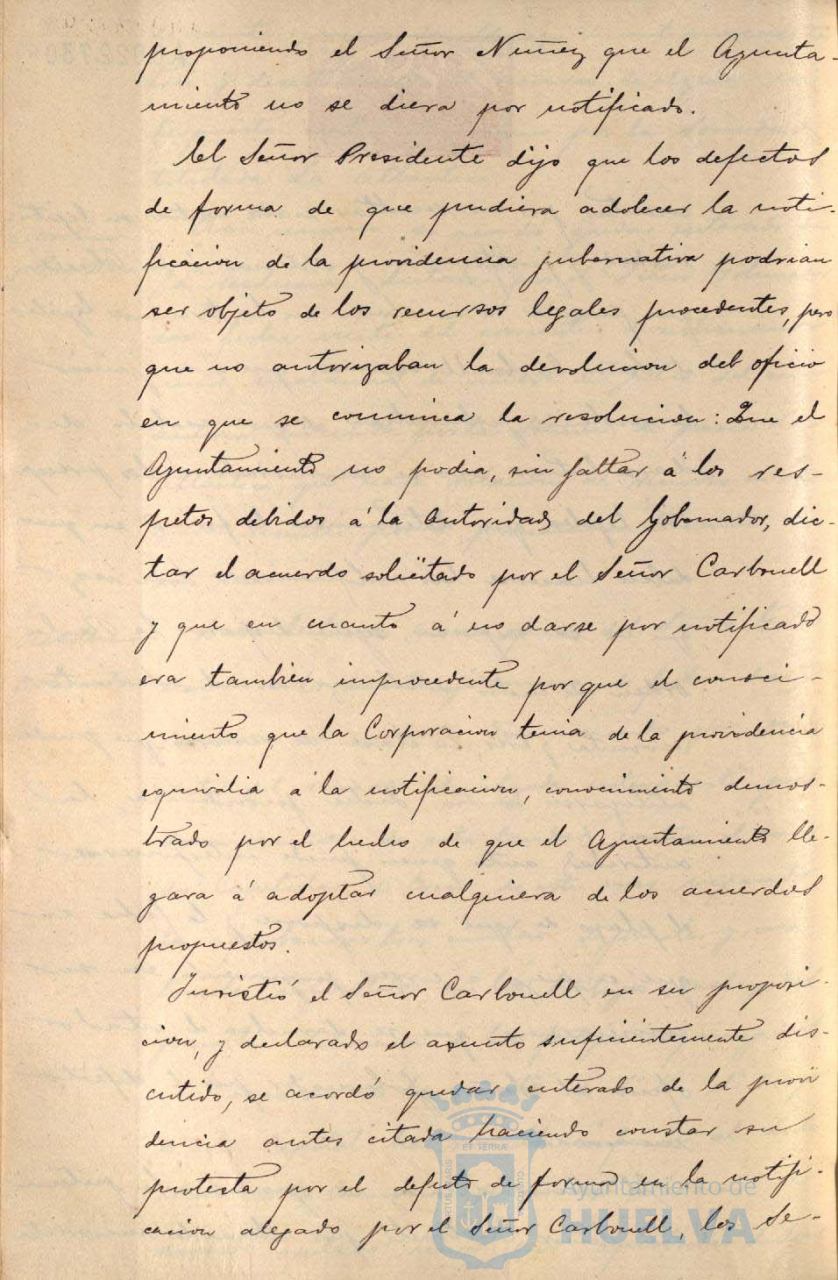 proponiendo el Señor Nuñez que el Ayunta-
miento no se diera por notificado.
El Señor Presidente dijo que los defectos
de forma de que pudiera adolecer la noti-
ficacion de la providencia gubernativa podrian
ser objeto de los recursos legales procedentes, pero
que no autorizaban la devolucion del oficio
en que se comunica la resolucion: Que el
Ayuntamiento no podia, sin faltar á los res-
petos debidos á la Autoridad del Gobernador, dic-
tar el acuerdo solicitado por el Señor Carbonell
y que en cuanto á no darse por notificado
era tambien improcedente por que el conoci-
miento que la Corporacion tenia de la providencia
equivalia á la notificacion, conocimiento demos-
trado por el hecho de que el Ayuntamiento lle-
gara á adoptar cualquiera de los acuerdos
propuestos.
Insistió el Señor Carbonell en su proposi-
cion, y declarado el asunto suficientemente dis-
cutido, se acordó quedar enterado de la provi
dencia antes citada haciendo constar su
protesta por el defecto de forma en la notifi-
cacion alegado por el Señor Carbonell, los Se-
Ayuntamiento de
HUELVA